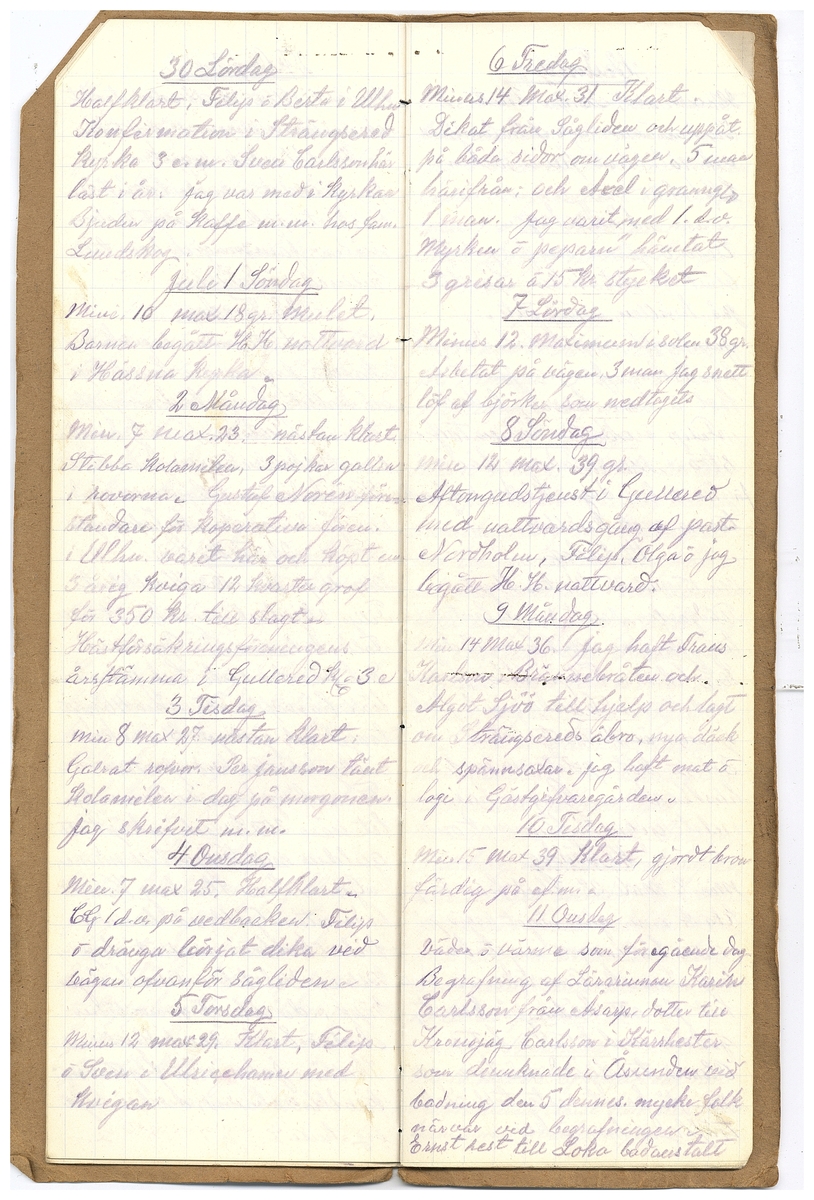 30 Lördag
Halfklart, Filip o Berta i Ulhn
Konfirmation i Strängsered
Kyrka 3 e.m. Sven Carlsson här
läst i år. jag var med i Kyrkan
Bjuden på kaffe m.m. hos fam.
Lundskog.
Juli 1 Söndag
Mini. 10 max 18 gr. Mulet.
Barnen begått H.H. nattvard
i Hössna Kyrka
2 Måndag
Min. 7 max. 23. nästan klart.
Stöbba kolamilen, 3 pojkar gallra
i rovorna. Gustaf Norén före-
ståndare för koperativa fören.
i Ulhn. varit här och köpt en
3 årig kviga 12 kvarter grof
för 350 kr. till slagt.
Hästförsäkringsföreningens
årsstämma i Gullered kl. 3 e
3 Tisdag
Min 8 max 27. nästan klart.
Galrat rofvor. Per Jansson tänt
Kolamilen i dag på morgonen.
jag skrifvit m.m.
4 Onsdag
Min. 7 max 25. Halfklart.
CG 1 d.v. på vedbacken. Filip
o dränga börjat dika ved
vägen ofvanför sågliden.
5 Torsdag
Minus 12 max 29. Klart, Filip
o Sven i Ulricehamn med
kvigan
6 Fredag
Minus 14 Max. 31 Klart.
Dikat från Sågliden och uppåt
på båda sidor om vägen. 5 man
härifrån; och Axel i
1 man. jag varit med 1. d.v.
Myrken o peparn" hämtat
3 grisar á 15 kr. stycket
7 Lördag
Minus 12. Maximum i solen 38 gr.
Arbetat på vägen. 3 man jag snett
löf af björkar som nedtagits
8 Söndag
Min 12 max. 39 gr.
Aftongudstjenst i Gullered
med nattvardsgång af past.
Nordholm, Filip, Olga o jag
begått H.H. nattvard.
9 Måndag.
Min 14 Max 36. jag haft Frans
och.
Algot Sjöö till hjelp och lagt
om Strängsereds åbro, nya däck
och spännsaxar. jag haft mat o
logi i Gästgifvaregården.
10 Tisdag
Min 15 Max 39 Klart, gjordt bron
färdig på efm.
11 Onsdag
Väder o värme som föregående dag
Begrafning af Lärarinnan Karin
Carlsson från Asarp, dotter till
Kronojäg Carlsson i Kärrhester
som drunknade i Åsunden vid
badning den 5 dennes. mycke folk
närvar vid begrafningen.
Ernst rest till Loka badanstalt